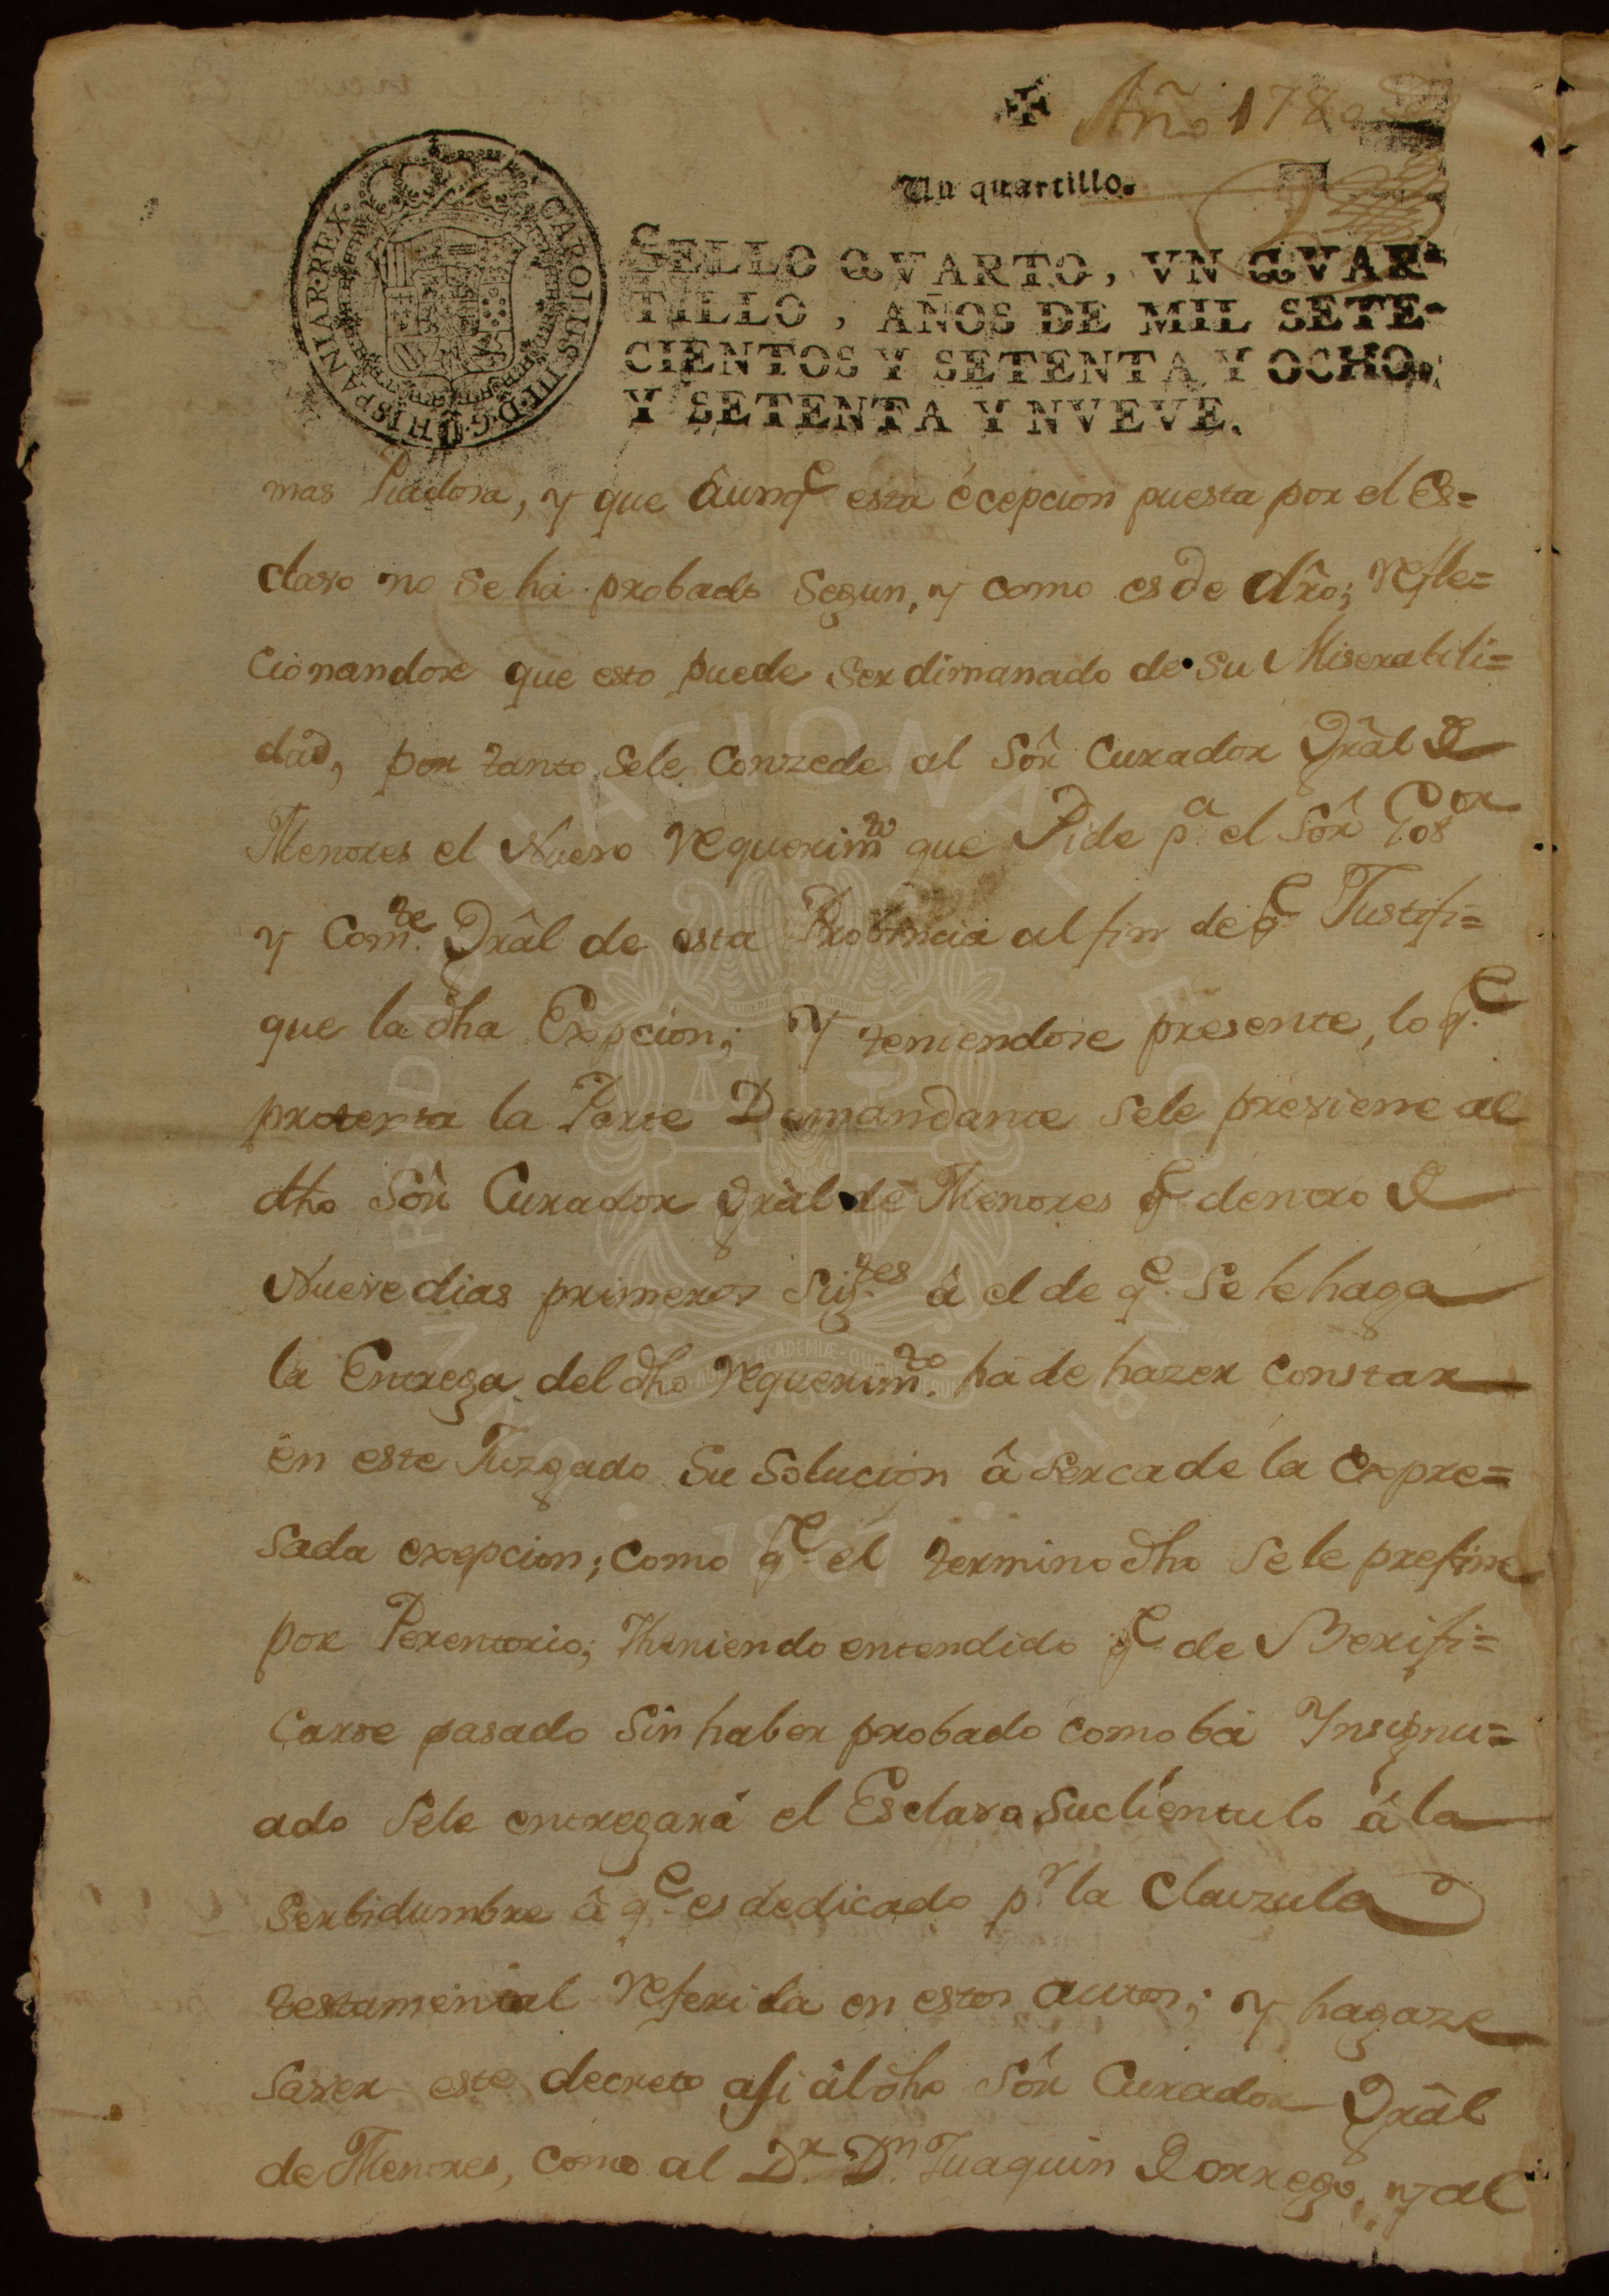 Año 1780
Un quartillo.
SELLO QVARTO, VN QVAR-
TILLO, AÑOS DE MIL SETE-
CIENTOS Y SETENTA Y OCHO,
Y SETENTA Y NVEVE.
CAROLUS III D.G. HISPANIAR. REX
mas Piadosa, y que âunqe esta écepcion puesta por el Es=
clavo no se há probado segun, y como es de dro; refle=
cionandose que esto puede ser dimanado de su Miserabili=
dad, por tanto sele Conzede al Sôr Curador Grâl de
Menores el Nuevo requerimto que Pide pa el Sôr Gosor
y Comte Grâl de esta Probincia al fin de qe Justifi=
que la dha Exepcion; y teniendose presente, lo qe
protexta la Parte Demandante sele previene al
dho Sôr Curador Grâl de Menores qe dentro de
Nueve dias primeros Sigtes â el de qe se le haga
la Entrega del dho requerimto há de hazer constar
en este Juzgado su solucion â serca de la expre=
sada exepcion; como qe el termino dho se le prefine
por Perentorio; Theniendo entendido qe de Berifi=
carse pasado sin haber probado como bá Ynsignu=
ado sele entregará el Esclavo su cliéntulo â la
serbidumbre â qe es dedicado pr la Clauzula
testamental referida en estos autos; y hagaze
saver este decreto asi âl dho Sôr Curador Grâl
de Menores, como al Dr. Dn Juaquin Dorrego, y al
UNIVERSIDAD NACIONAL DE COLOMBIA
1867